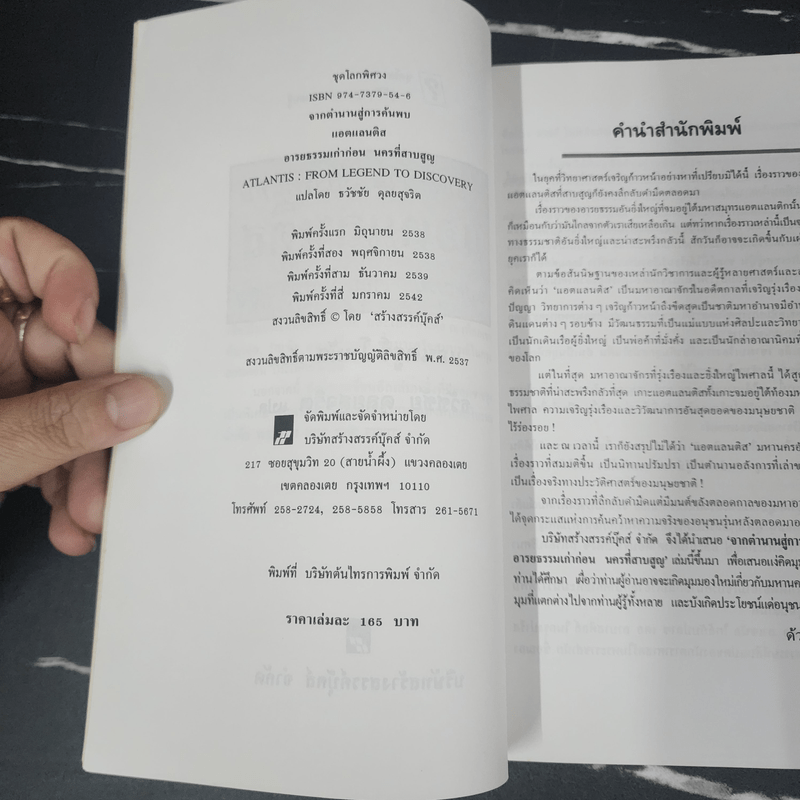 ชุดโลกพิศวง
ISBN 974-7379-54-6
จากตำนานสู่การค้นพบ
แอตแลนติส
อารยธรรมเก่าก่อน นครที่สาบสูญ
ATLANTIS : FROM LEGEND TO DISCOVERY
แปลโดย ธวัชชัย ดุลยสุจริต
พิมพ์ครั้งแรก มิถุนายน 2538
พิมพ์ครั้งที่สอง พฤศจิกายน 2538
พิมพ์ครั้งที่สาม ธันวาคม 2539
พิมพ์ครั้งที่สี่ มกราคม 2542
สงวนลิขสิทธิ์ © โดย ‘สร้างสรรค์บุ๊คส์’
สงวนลิขสิทธิ์ตามพระราชบัญญัติลิขสิทธิ์ พ.ศ. 2537
จัดพิมพ์และจัดจำหน่ายโดย
บริษัทสร้างสรรค์บุ๊คส์ จำกัด
217 ซอยสุขุมวิท 20 (สายน้ำผึ้ง) แขวงคลองเตย
เขตคลองเตย กรุงเทพฯ 10110
โทรศัพท์ 258-2724, 258-5858 โทรสาร 261-5671
พิมพ์ที่ บริษัทต้นไทรการพิมพ์ จำกัด
ราคาเล่มละ 165 บาท
คำนำสำนักพิมพ์
ในยุคที่วิทยาศาสตร์เจริญก้าวหน้าอย่างหาที่เปรียบมิได้นี้ เรื่องราวของ
แอตแลนติสที่สาบสูญก็ยังคงลึกลับดำมืดตลอดมา
เรื่องราวของอารยธรรมอันยิ่งใหญ่ที่จมอยู่ใต้มหาสมุทรแอตแลนติกนั้น
ก็เหมือนกับว่ามันไกลจากตัวเราเสียเหลือเกิน แต่ทว่าหากเรื่องราวเหล่านี้เป็น
ทางธรรมชาติอันยิ่งใหญ่และน่าสะพรึงกลัวนี้ สักวันก็อาจจะเกิดขึ้นกับ
ยุคเราก็ได้
ตามข้อสันนิษฐานของเหล่านักวิชาการและผู้รู้หลายศาสตร์และ
คิดเห็นว่า ‘แอตแลนติส’ เป็นมหาอาณาจักรในอดีตกาลที่เจริญรุ่งเรือง
ปัญญา วิทยาการต่าง ๆ เจริญก้าวหน้าถึงขีดสุดเป็นชาติมหาอำนาจมี
ดินแดนต่าง ๆ รอบข้าง มีวัฒนธรรมที่เป็นแม่แบบแห่งศิลปะและวิทยา
เป็นนักเดินเรือผู้ยิ่งใหญ่ เป็นพ่อค้าที่มั่งคั่ง และเป็นนักล่าอาณานิคม
ของโลก
แต่ในที่สุด มหาอาณาจักรที่รุ่งเรืองและยิ่งใหญ่ไพศาลนี้ ได้
ธรรมชาติที่น่าสะพรึงกลัวที่สุด เกาะแอตแลนติสทั้งเกาะจมอยู่ใต้ท้อง
ไพศาล ความเจริญรุ่งเรืองและวิวัฒนาการอันสุดยอดของมนุษยชาติ
ไร้ร่องรอย !
และ ณ เวลานี้ เราก็ยังสรุปไม่ได้ว่า ‘แอตแลนติส’ มหานคร
เรื่องราวที่สมมติขึ้น เป็นนิทานปรัมปรา เป็นตำนานอลังการที่เล่า
เป็นเรื่องจริงทางประวัติศาสตร์ของมนุษยชาติ !
จากเรื่องราวที่ลึกลับดำมืดแต่มีมนต์ขลังตลอดกาลของ
ได้จุดกระแสแห่งการค้นคว้าหาความจริงของอนุชนรุ่นหลังตลอดมา
บริษัทสร้างสรรค์บุ๊คส์ จำกัด จึงได้นำเสนอ ‘จากตำนานสู่
อารยธรรมเก่าก่อน นครที่สาบสูญ’ เล่มนี้ขึ้นมา เพื่อเสนอแง่คิด
ท่านได้ศึกษา เผื่อว่าท่านผู้อ่านอาจจะเกิดมุมมองใหม่เกี่ยวกับ
มุมที่แตกต่างไปจากท่านผู้รู้ทั้งหลาย และบังเกิดประโยชน์แด่